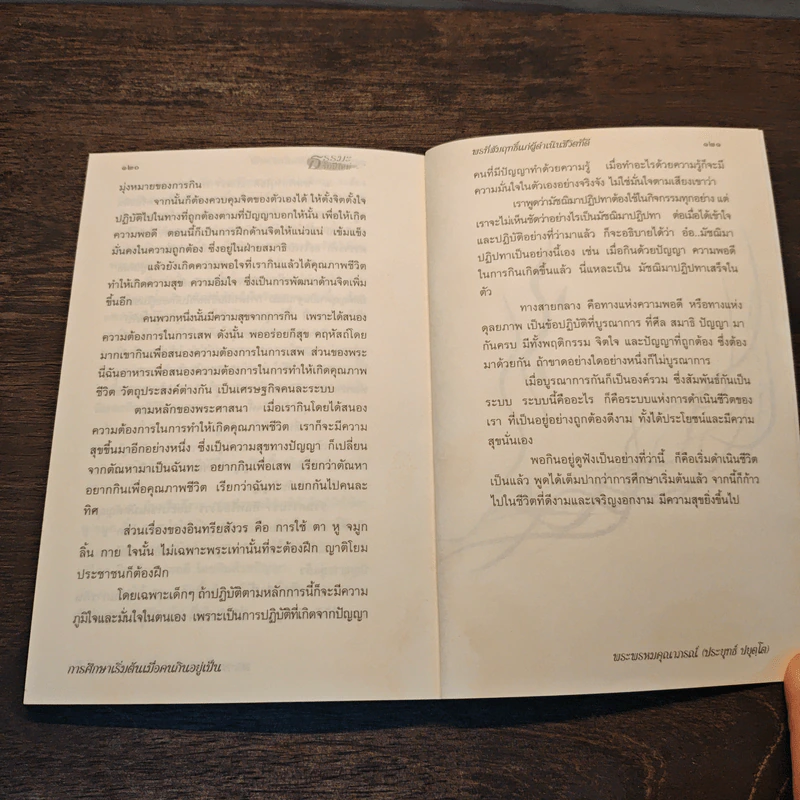 ๑๒๐
ธรรมะ
มุ่งหมายของการกิน
จากนั้นก็ต้องควบคุมจิตของตัวเองได้ ให้ตั้งจิตตั้งใจ
ปฏิบัติไปในทางที่ถูกต้องตามที่ปัญญาบอกให้นั้น เพื่อให้เกิด
ความพอดี ตอนนี้ก็เป็นการฝึกด้านจิตให้แน่วแน่ เข้มแข็ง
มั่นคงในความถูกต้อง ซึ่งอยู่ในฝ่ายสมาธิ
แล้วยังเกิดความพอใจที่เรากินแล้วได้คุณภาพชีวิต
ทำให้เกิดความสุข ความอิ่มใจ ซึ่งเป็นการพัฒนาด้านจิตเพิ่ม
ขึ้นอีก
คนพวกหนึ่งนั้นมีความสุขจากการกิน เพราะได้สนอง
ความต้องการในการเสพ ดังนั้น พออร่อยก็สุข คฤหัสถ์โดย
มากเขากินเพื่อสนองความต้องการในการเสพ ส่วนของพระ
นี่ฉันอาหารเพื่อสนองความต้องการในการทำให้เกิดคุณภาพ
ชีวิต วัตถุประสงค์ต่างกัน เป็นเศรษฐกิจคนละระบบ
ตามหลักของพระศาสนา เมื่อเรากินโดยได้สนอง
ความต้องการในการทำให้เกิดคุณภาพชีวิต เราก็จะมีความ
สุขขึ้นมาอีกอย่างหนึ่ง ซึ่งเป็นความสุขทางปัญญา ก็เปลี่ยน
จากตัณหามาเป็นฉันทะ อยากกินเพื่อเสพ เรียกว่าตัณหา
อยากกินเพื่อคุณภาพชีวิต เรียกว่าฉันทะ แยกกันไปคนละ
ทิศ
ส่วนเรื่องของอินทรียสังวร คือ การใช้ ตา หู จมูก
ลิ้น กาย ใจนั้น ไม่เฉพาะพระเท่านั้นที่จะต้องฝึก ญาติโยม
ประชาชนก็ต้องฝึก
โดยเฉพาะเด็กๆ ถ้าปฏิบัติตามหลักการนี้ก็จะมีความ
ภูมิใจและมั่นใจในตนเอง เพราะเป็นการปฏิบัติที่เกิดจากปัญญา
การศึกษาเริ่มต้นเมื่อคนกินอยู่เป็น
พรที่สัมฤทธิ์แก่ผู้ดำเนินชีวิตที่ดี
๑๒๑
คนที่มีปัญญาทำด้วยความรู้ เมื่อทำอะไรด้วยความรู้ก็จะมี
ความมั่นใจในตัวเองอย่างจริงจัง ไม่ใช่มั่นใจตามเสียงเขาว่า
เราพูดว่ามัชฌิมาปฏิปทาต้องใช้ในกิจกรรมทุกอย่าง แต่
เราจะไม่เห็นชัดว่าอย่างไรเป็นมัชฌิมาปฏิปทา ต่อเมื่อได้เข้าใจ
และปฏิบัติอย่างที่ว่ามาแล้ว ก็จะอธิบายได้ว่า อ๋อ..มัชฌิมา
ปฏิปทาเป็นอย่างนี้เอง เช่น เมื่อกินด้วยปัญญา ความพอดี
ในการกินเกิดขึ้นแล้ว นี่แหละเป็น มัชฌิมาปฏิปทาเสร็จใน
ตัว
ทางสายกลาง คือทางแห่งความพอดี หรือทางแห่ง
ดุลยภาพ เป็นข้อปฏิบัติที่บูรณาการ ที่ศีล สมาธิ ปัญญา มา
กันครบ มีทั้งพฤติกรรม จิตใจ และปัญญาที่ถูกต้อง ซึ่งต้อง
มาด้วยกัน ถ้าขาดอย่างใดอย่างหนึ่งก็ไม่บูรณาการ
เมื่อบูรณาการกันก็เป็นองค์รวม ซึ่งสัมพันธ์กันเป็น
ระบบ ระบบนี้คืออะไร ก็คือระบบแห่งการดำเนินชีวิตของ
เรา ที่เป็นอยู่อย่างถูกต้องดีงาม ทั้งได้ประโยชน์และมีความ
สุขนั่นเอง
พอกินอยู่ดูฟังเป็นอย่างที่ว่านี้ ก็คือเริ่มดำเนินชีวิต
เป็นแล้ว พูดได้เต็มปากว่าการศึกษาเริ่มต้นแล้ว จากนี้ก็ก้าว
ไปในชีวิตที่ดีงามและเจริญงอกงาม มีความสุขยิ่งขึ้นไป
พระพรหมคุณาภรณ์ (ประยุทธ์ ปยุตฺโต)